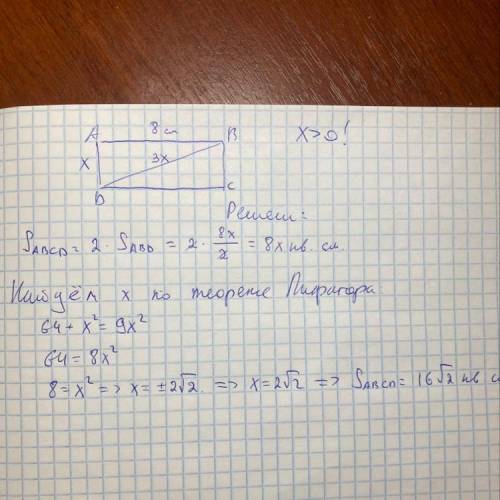 8 см
A B x>0!
x 3x
D C
Решен:
S_ABCD = 2 · S_ABD = 2 · 8x/2 = 8x кв. см.
Найдём x по теореме Пифагора
64 + x² = 9x²
64 = 8x²
8 = x² => x = ±2√2 => x = 2√2 => S_ABCD = 16√2 кв с